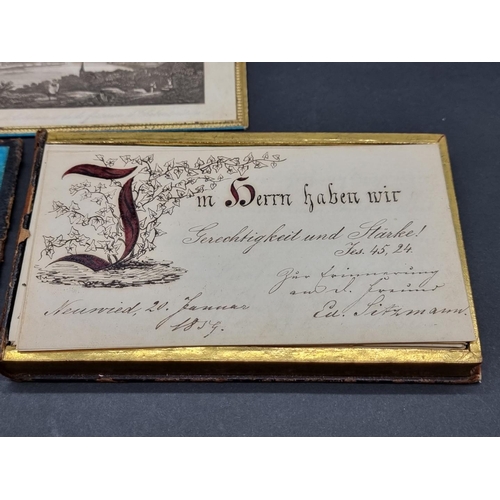 Im Herrn haben wir
Gerechtigkeit und Stärke!
Jes. 45, 24.
Zur Erinnerung
an d. Freund
Neuwied, 20. Januar
1859.
Ed. Sitzmann.